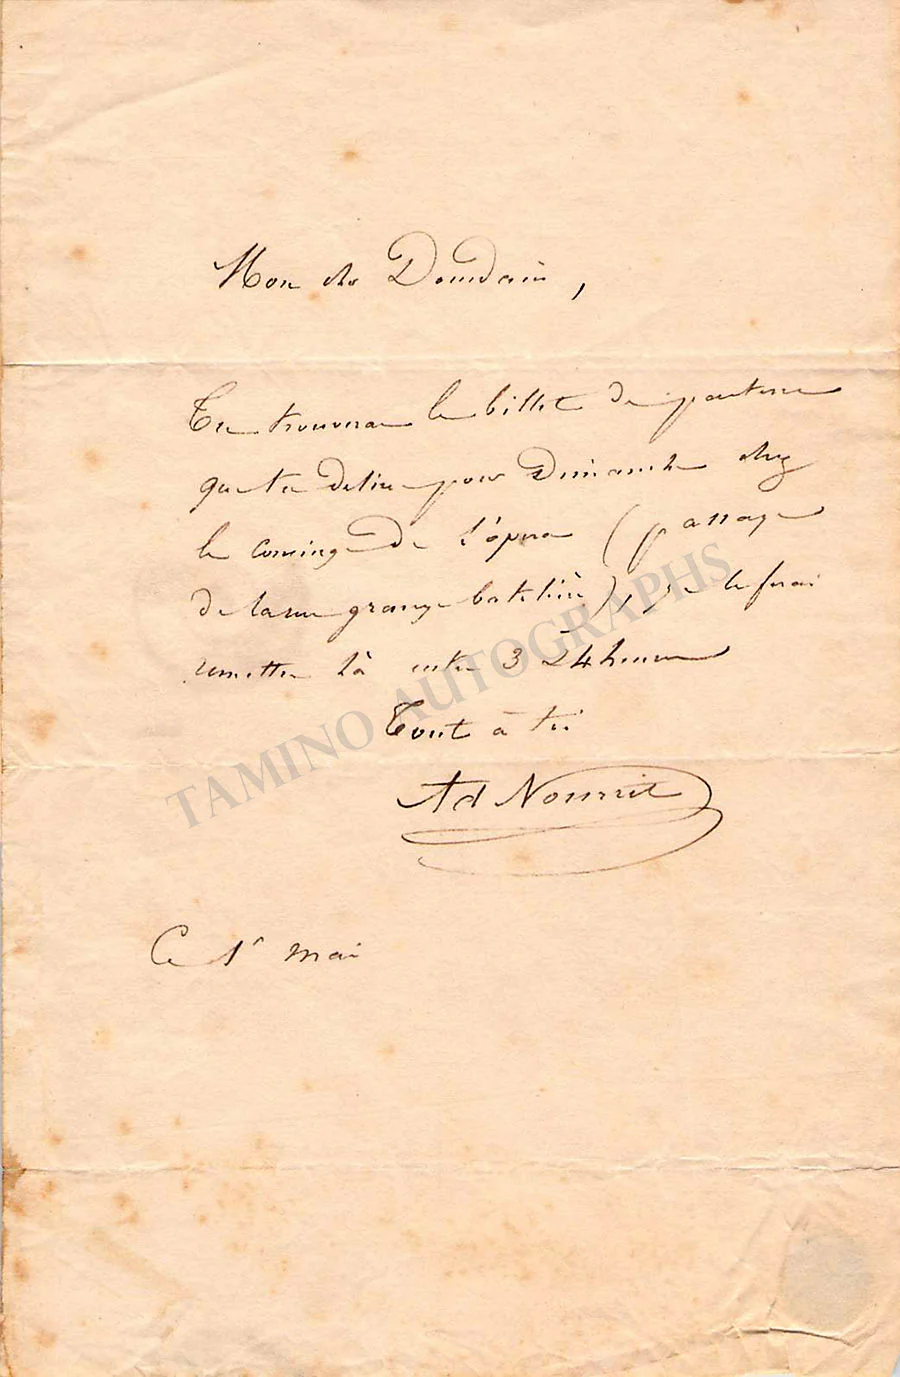 Mon cher Doudain,
Tu trouveras le billet de parterre
que tu desires pour Dimanche chez
le concierge de l'opera (passage
de la rue grange bateliere), je le ferai
remettre là entre 3 & 4 heures
Tout à toi
Ad Nourrit
Ce 1r mai
TAMINO AUTOGRAPHS